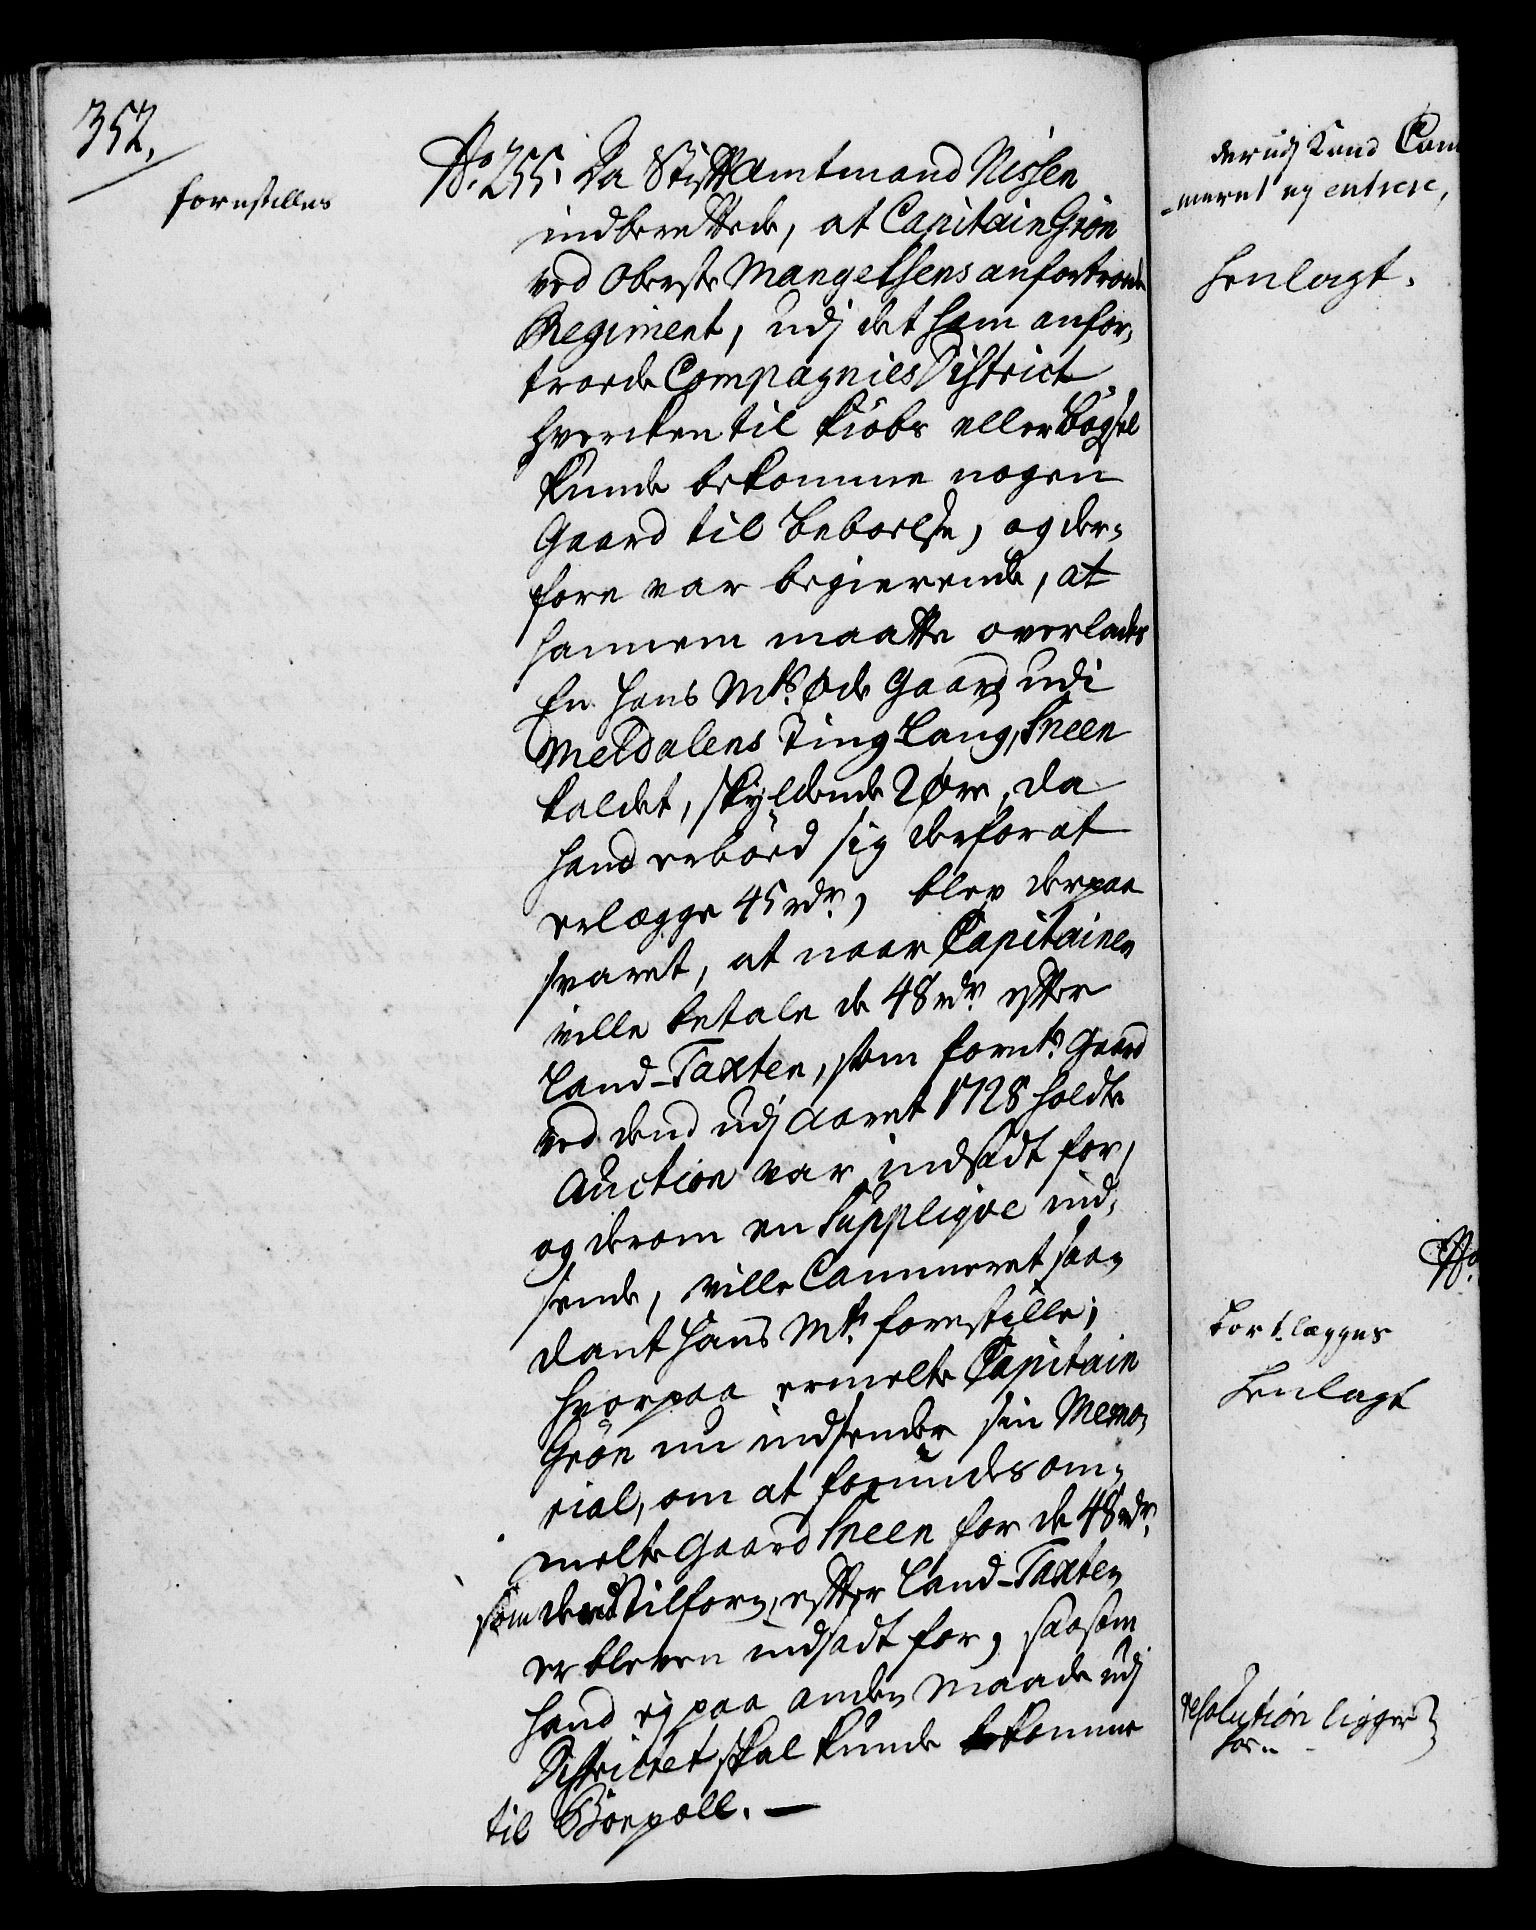 352.
forestilles
No. 255. Da Stiftamtmand Nissen
indberettede, at Capitain Grön
ved Oberste Mangelsens anfortroede
Regiment, udj det ham anfor-
troede Compagnies District
hvercken til Kiöbs eller Bögsel
kunde bekomme nogen
Gaard til Beboelse, og der-
fore var begierende, at
hannem maatte overlades
En Hans Mts. Øde Gaard udi
Meldalens Ting Laug, Sneen
kaldet, skyldende 2 Øre, da
hand erböed sig derfor at
erlægge 45 rdr., blev derpaa
svaret, at naar Capitainen
ville betale de 48 rdr. efter
Land-Taxten, som fornte. Gaard
ved dend udj Aaret 1728 holdte
Auction var indsadt for,
og derom en Suppliqve ind-
sende, ville Cammeret saa-
dant Hans Mt. forestille;
hvorpaa ermelte Capitain
Grön nu indsender sin Memo-
rial, om at forundes om-
melte Gaard Sneen for de 48 rdr.
som dend tilforn, efter Land-Taxten
er bleven indsadt for, saasom
hand ej paa anden Maade udj
Districtet skal kunde bekomme
til Boepæll. —
derudj kand Cam
-meret ej entrere,
henlagt.
No.
bortlægges
henlagt
resolution ligger
her